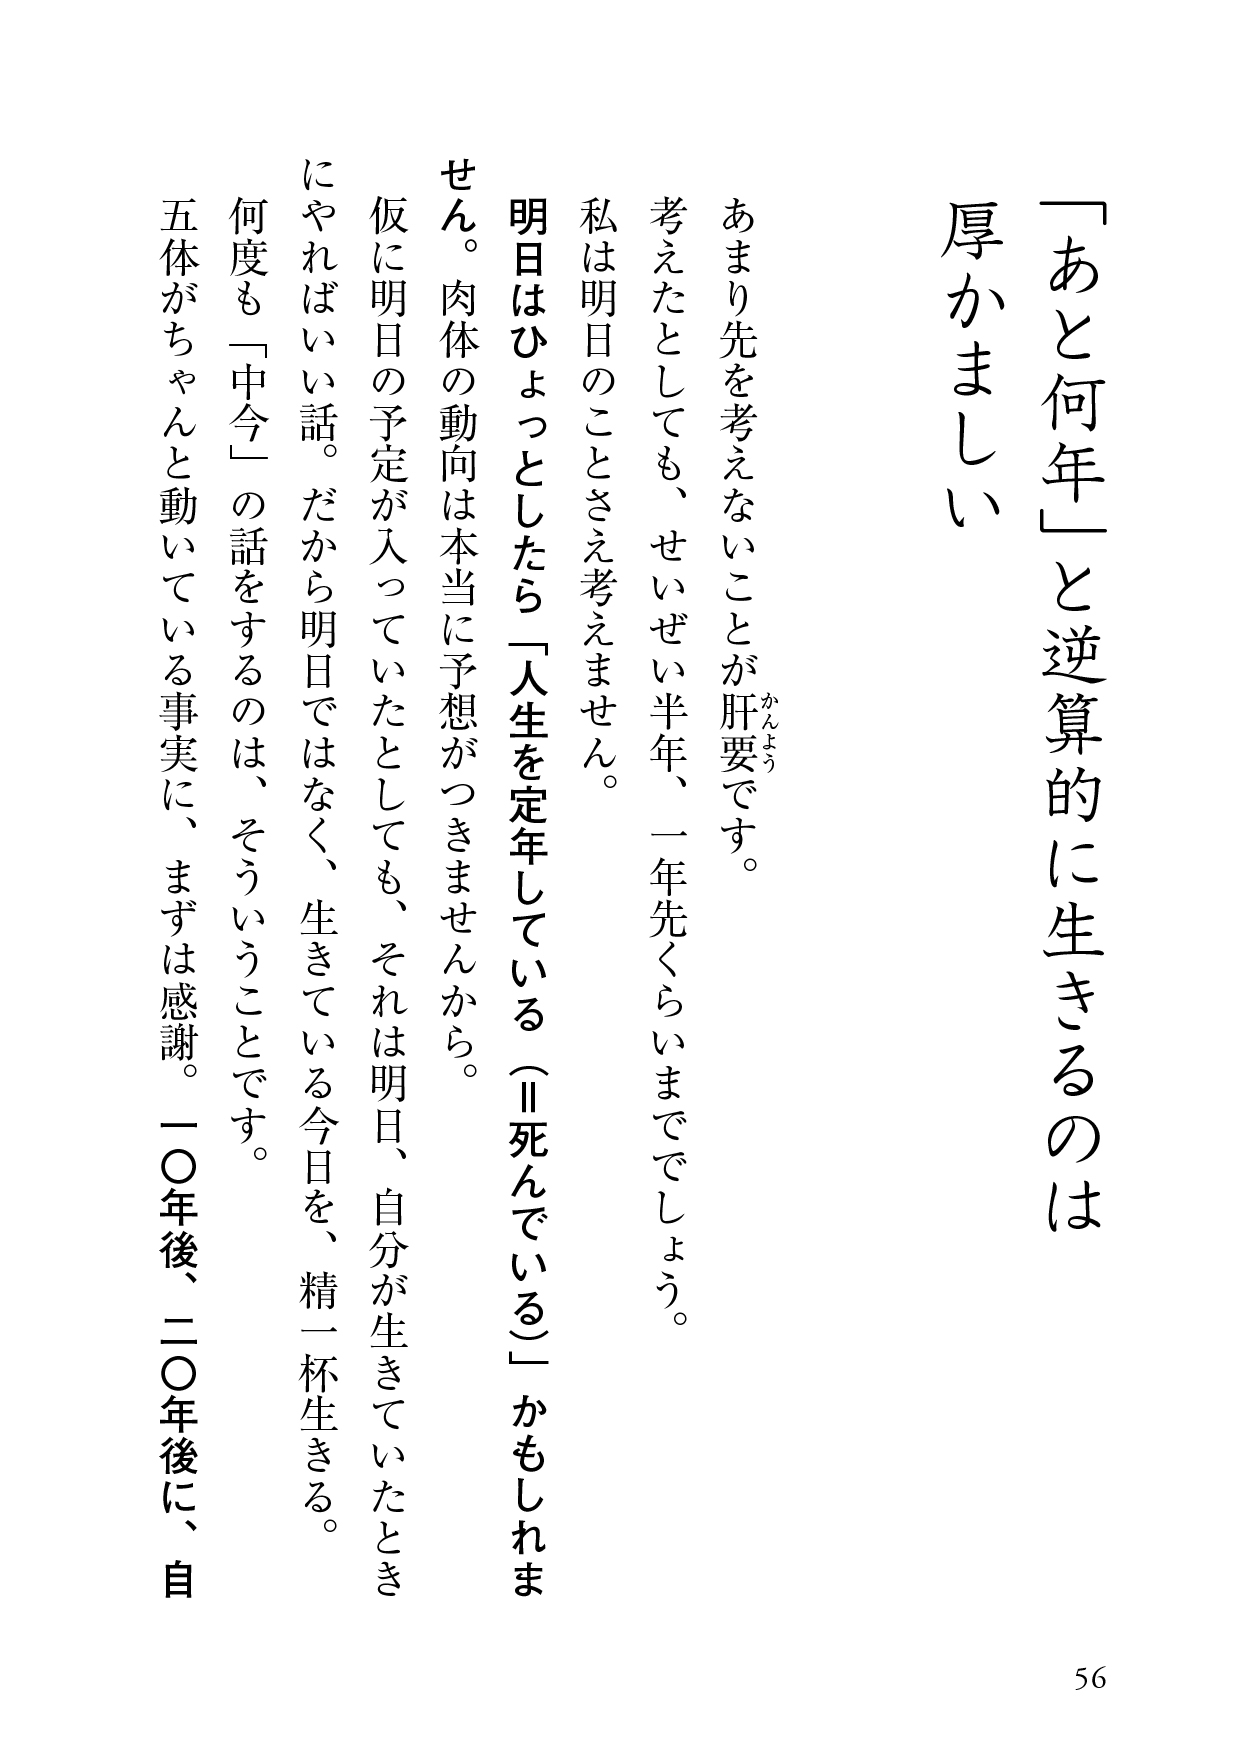 「あと何年」と逆算的に生きるのは
厚かましい
あまり先を考えないことが肝要です。
かんよう
考えたとしても、せいぜい半年、一年先くらいまででしょう。
私は明日のことさえ考えません。
明日はひょっとしたら「人生を定年している（＝死んでいる）」かもしれま
せん。肉体の動向は本当に予想がつきませんから。
仮に明日の予定が入っていたとしても、それは明日、自分が生きていたとき
にやればいい話。だから明日ではなく、生きている今日を、精一杯生きる。
何度も「中今」の話をするのは、そういうことです。
五体がちゃんと動いている事実に、まずは感謝。一〇年後、二〇年後に、自
56